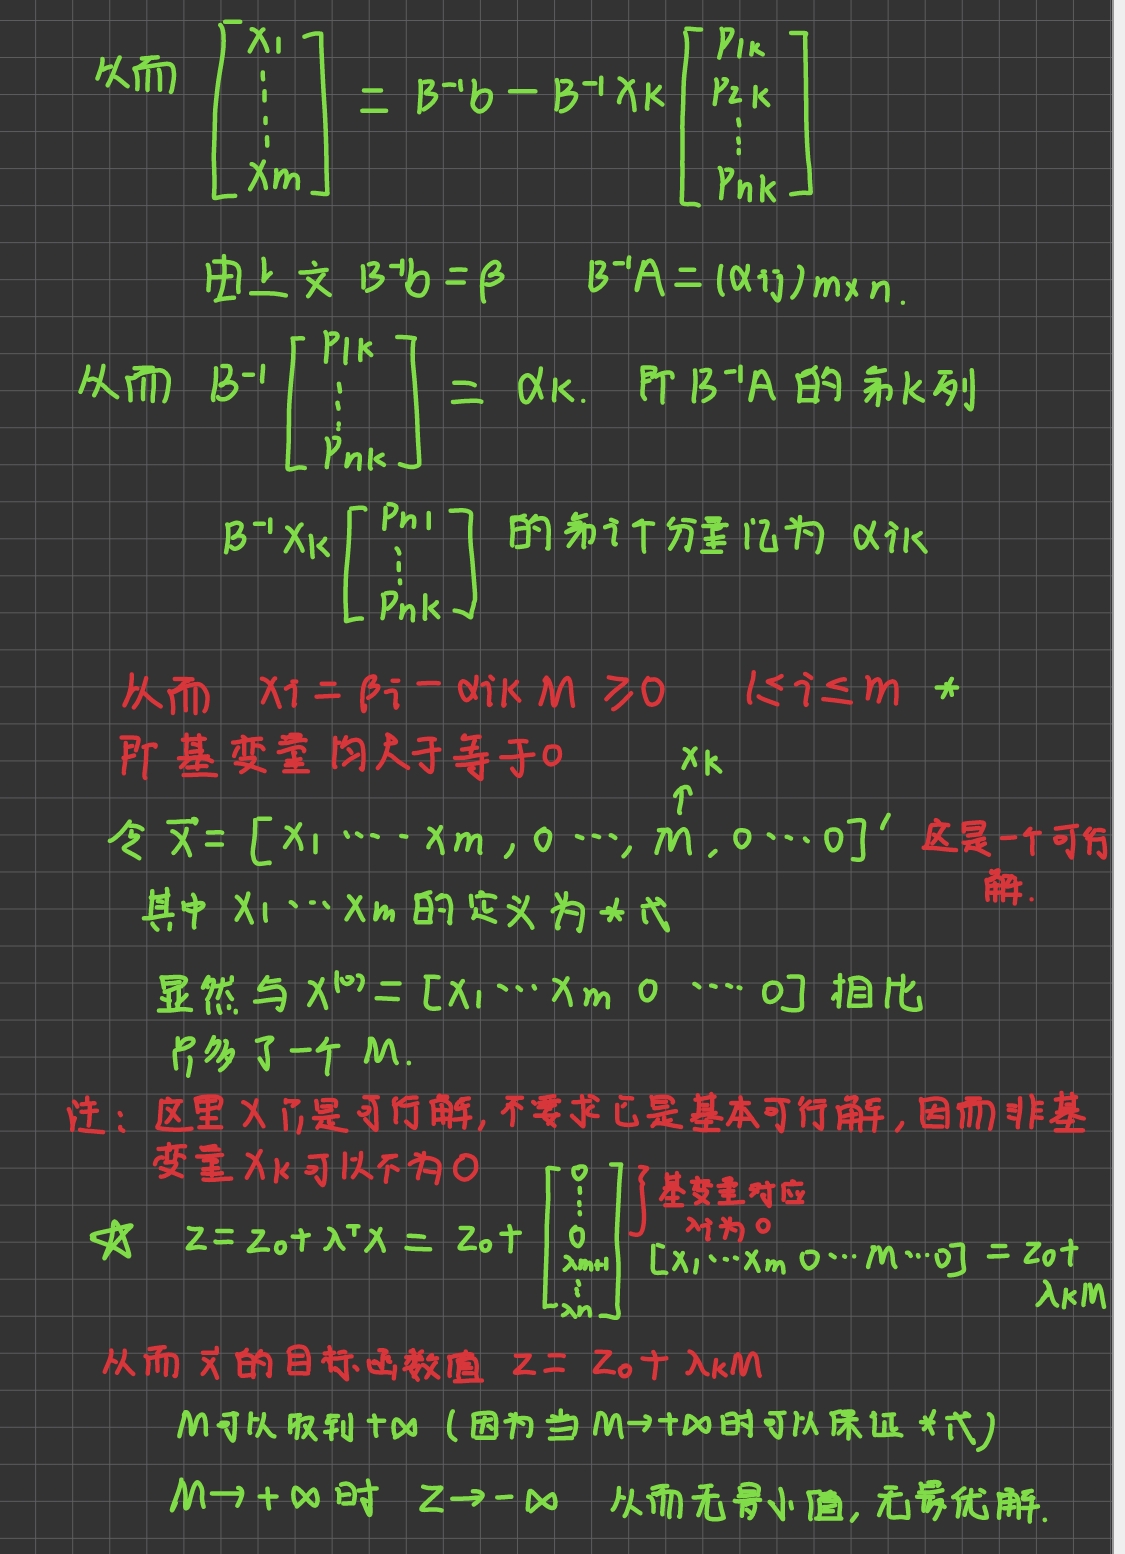 从而 [x1 ⋮ xm] = B⁻¹b − B⁻¹xk [P1k P2k ⋮ Pnk]
由上文 B⁻¹b = β B⁻¹A = (αij)m×n.
从而 B⁻¹ [P1k ⋮ Pnk] = αk. 即B⁻¹A的第k列
B⁻¹xk [Pn1 ⋮ Pnk] 的第i个分量记为 αik
从而 xi = βi − αik M ⩾0 1≤i≤m *
即基变量均大于等于0
xk
↑
令 x̄ = [x1 ⋯ xm, 0 ⋯, M, 0⋯0]′ 这是一个可行
解.
其中 x1⋯xm的定义为*式
显然与 x⁽⁰⁾ = [x1⋯xm 0 ⋯ 0] 相比
只多了一个 M.
注: 这里x只是可行解,不要求它是基本可行解,因而非基
变量xk可以不为0
☆ z = z0 + λᵀx = z0 + [0 ⋮ 0 λm+1 ⋮ λn] } 基变量对应
λi为0
[x1⋯xm 0⋯M⋯0] = z0 +
λkM
从而x̄的目标函数值 z = z0 + λkM
M可以取到+∞ (因为当M→+∞时可以保证*式)
M→+∞时 z→−∞ 从而无最小值,无最优解.